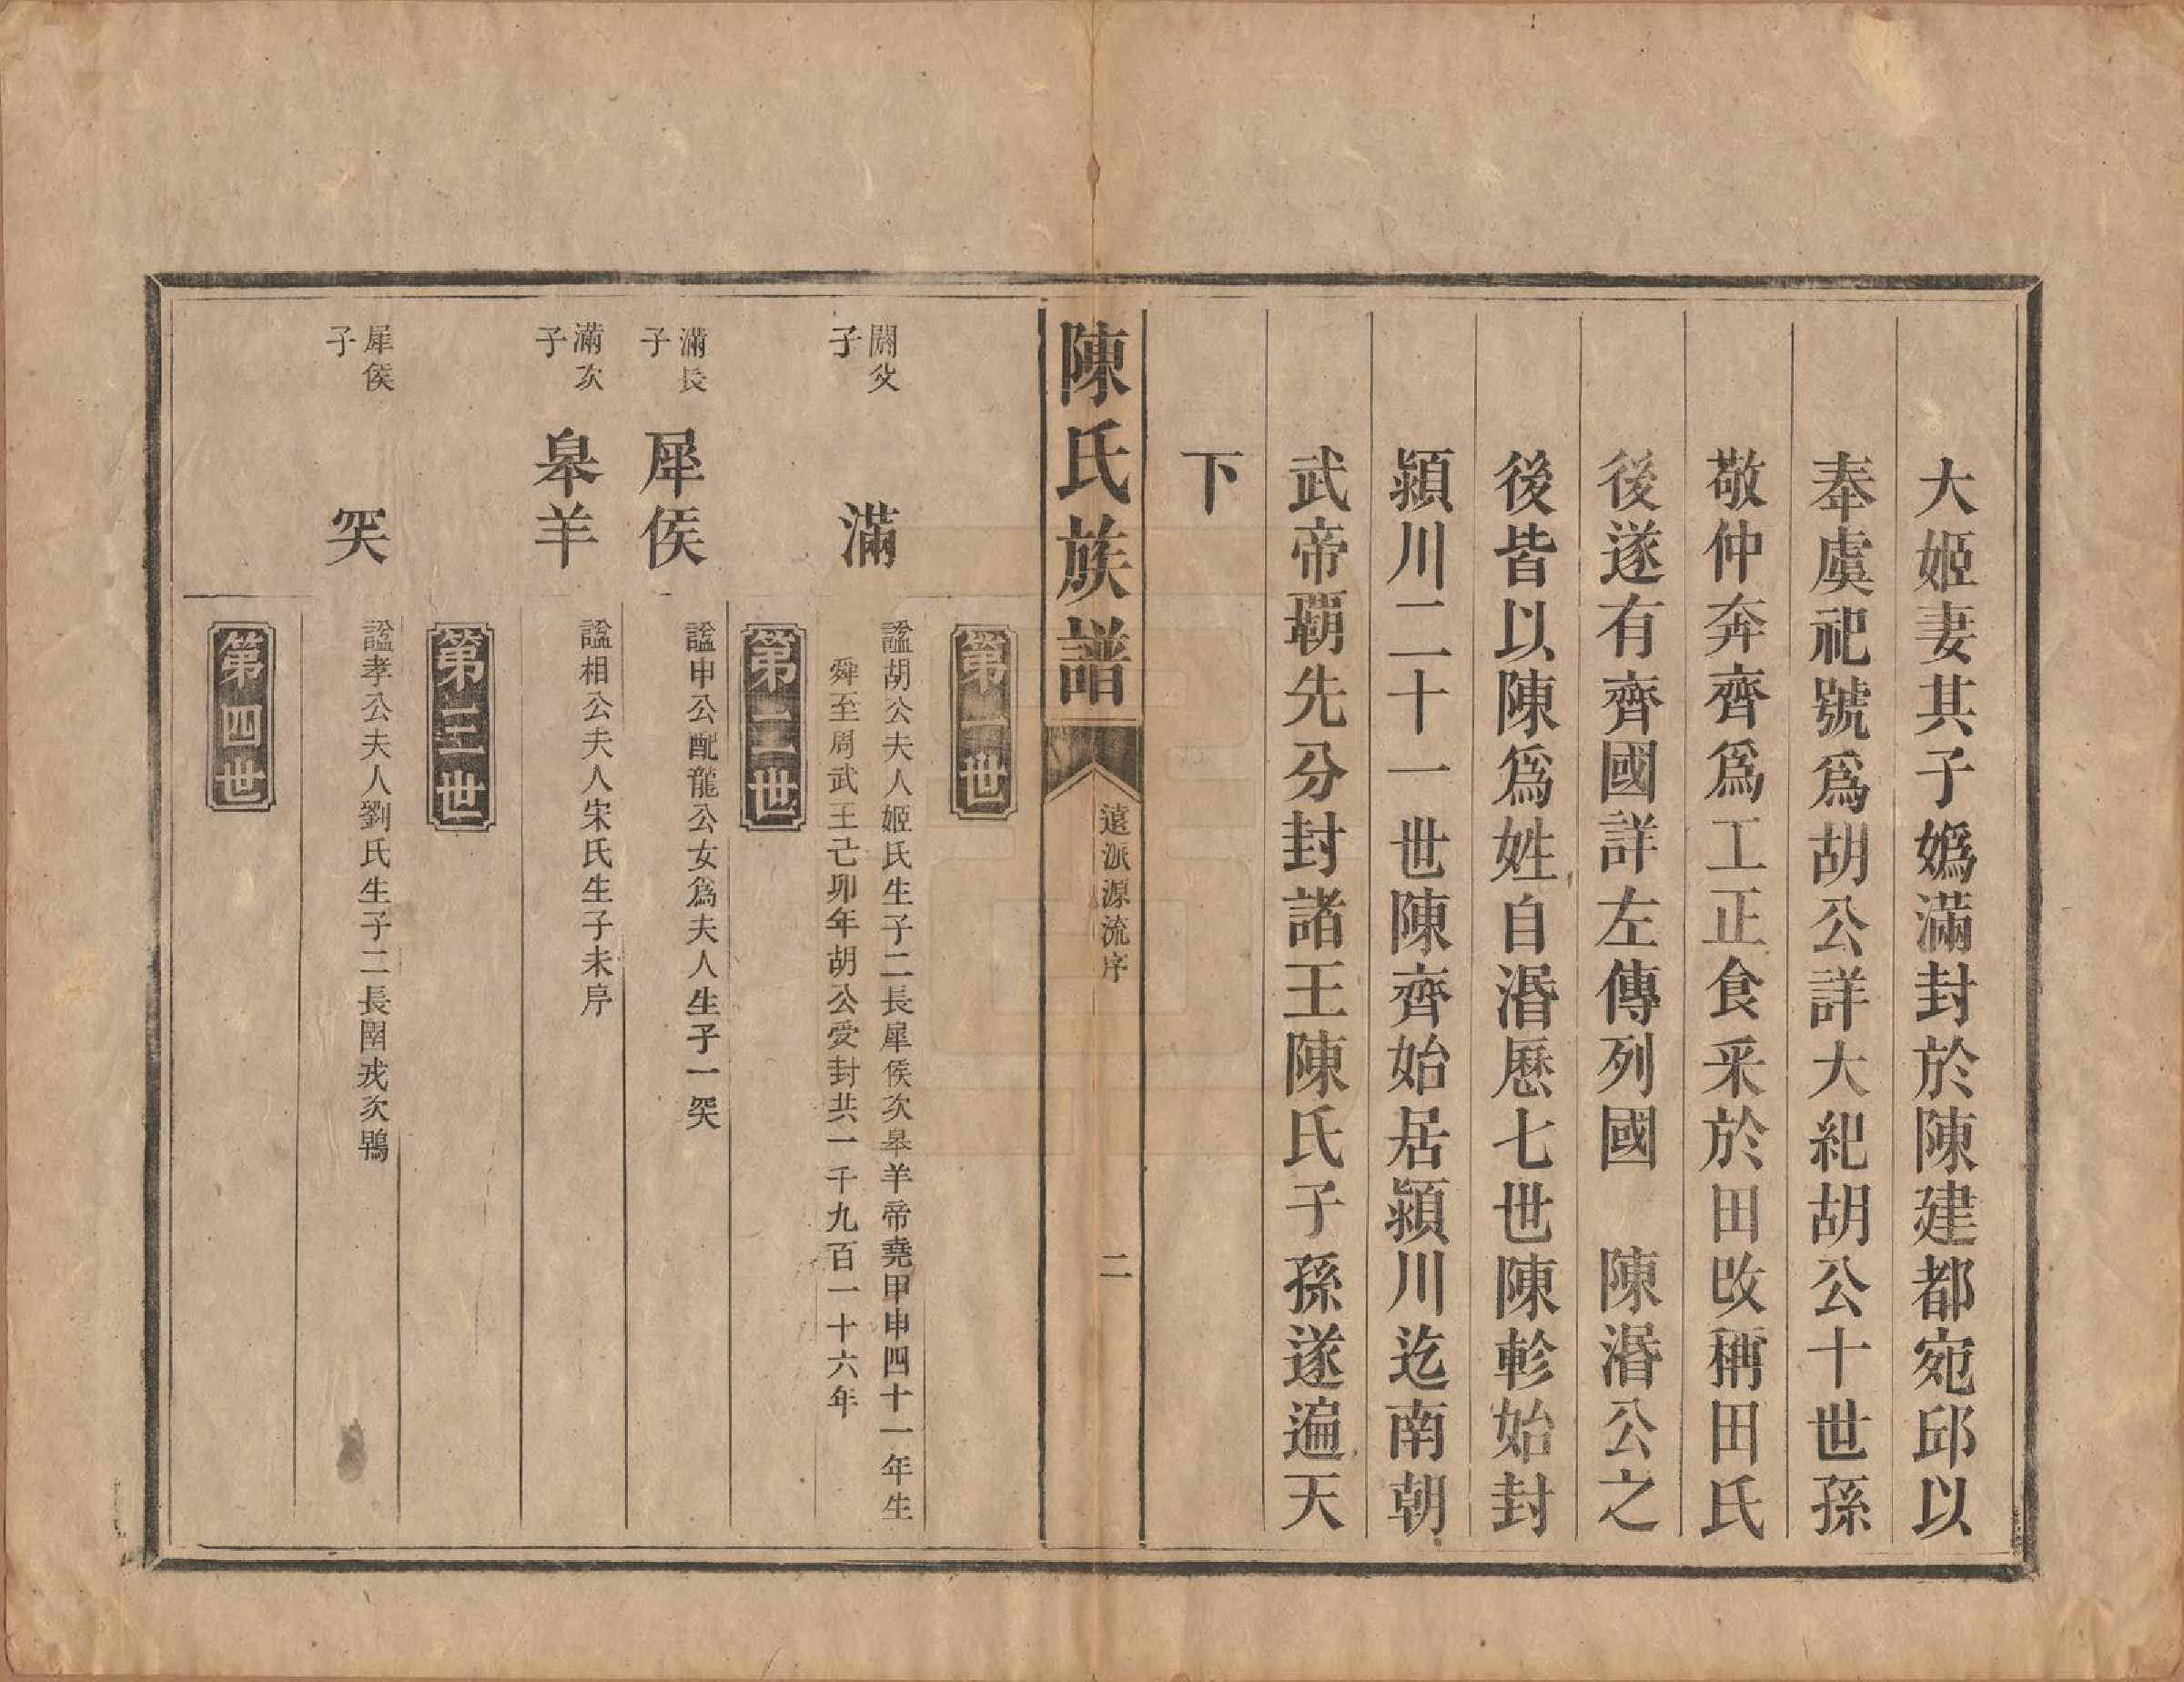 大姬妻其子媯滿封於陳建都宛邱以
奉虞祀號爲胡公詳大紀胡公十世孫
敬仲奔齊爲工正食采於田改稱田氏
後遂有齊國詳左傳列國　陳湣公之
後皆以陳爲姓自湣厯七世陳軫始封
潁川二十一世陳齊始居潁川迄南朝
武帝覇先分封諸王陳氏子孫遂遍天
下
陳氏族譜
遠派源流序
二
第一世
閼父
子
滿
諡胡公夫人姬氏生子二長犀侯次皋羊帝堯甲申四十一年生
舜至周武王己卯年胡公受封共一千九百一十六年
第二世
滿長
子
犀侯
諡申公配龍公女爲夫人生子一突
滿次
子
皋羊
諡相公夫人宋氏生子未序
第三世
犀侯
子
突
諡孝公夫人劉氏生子二長圉戎次鴇
第四世